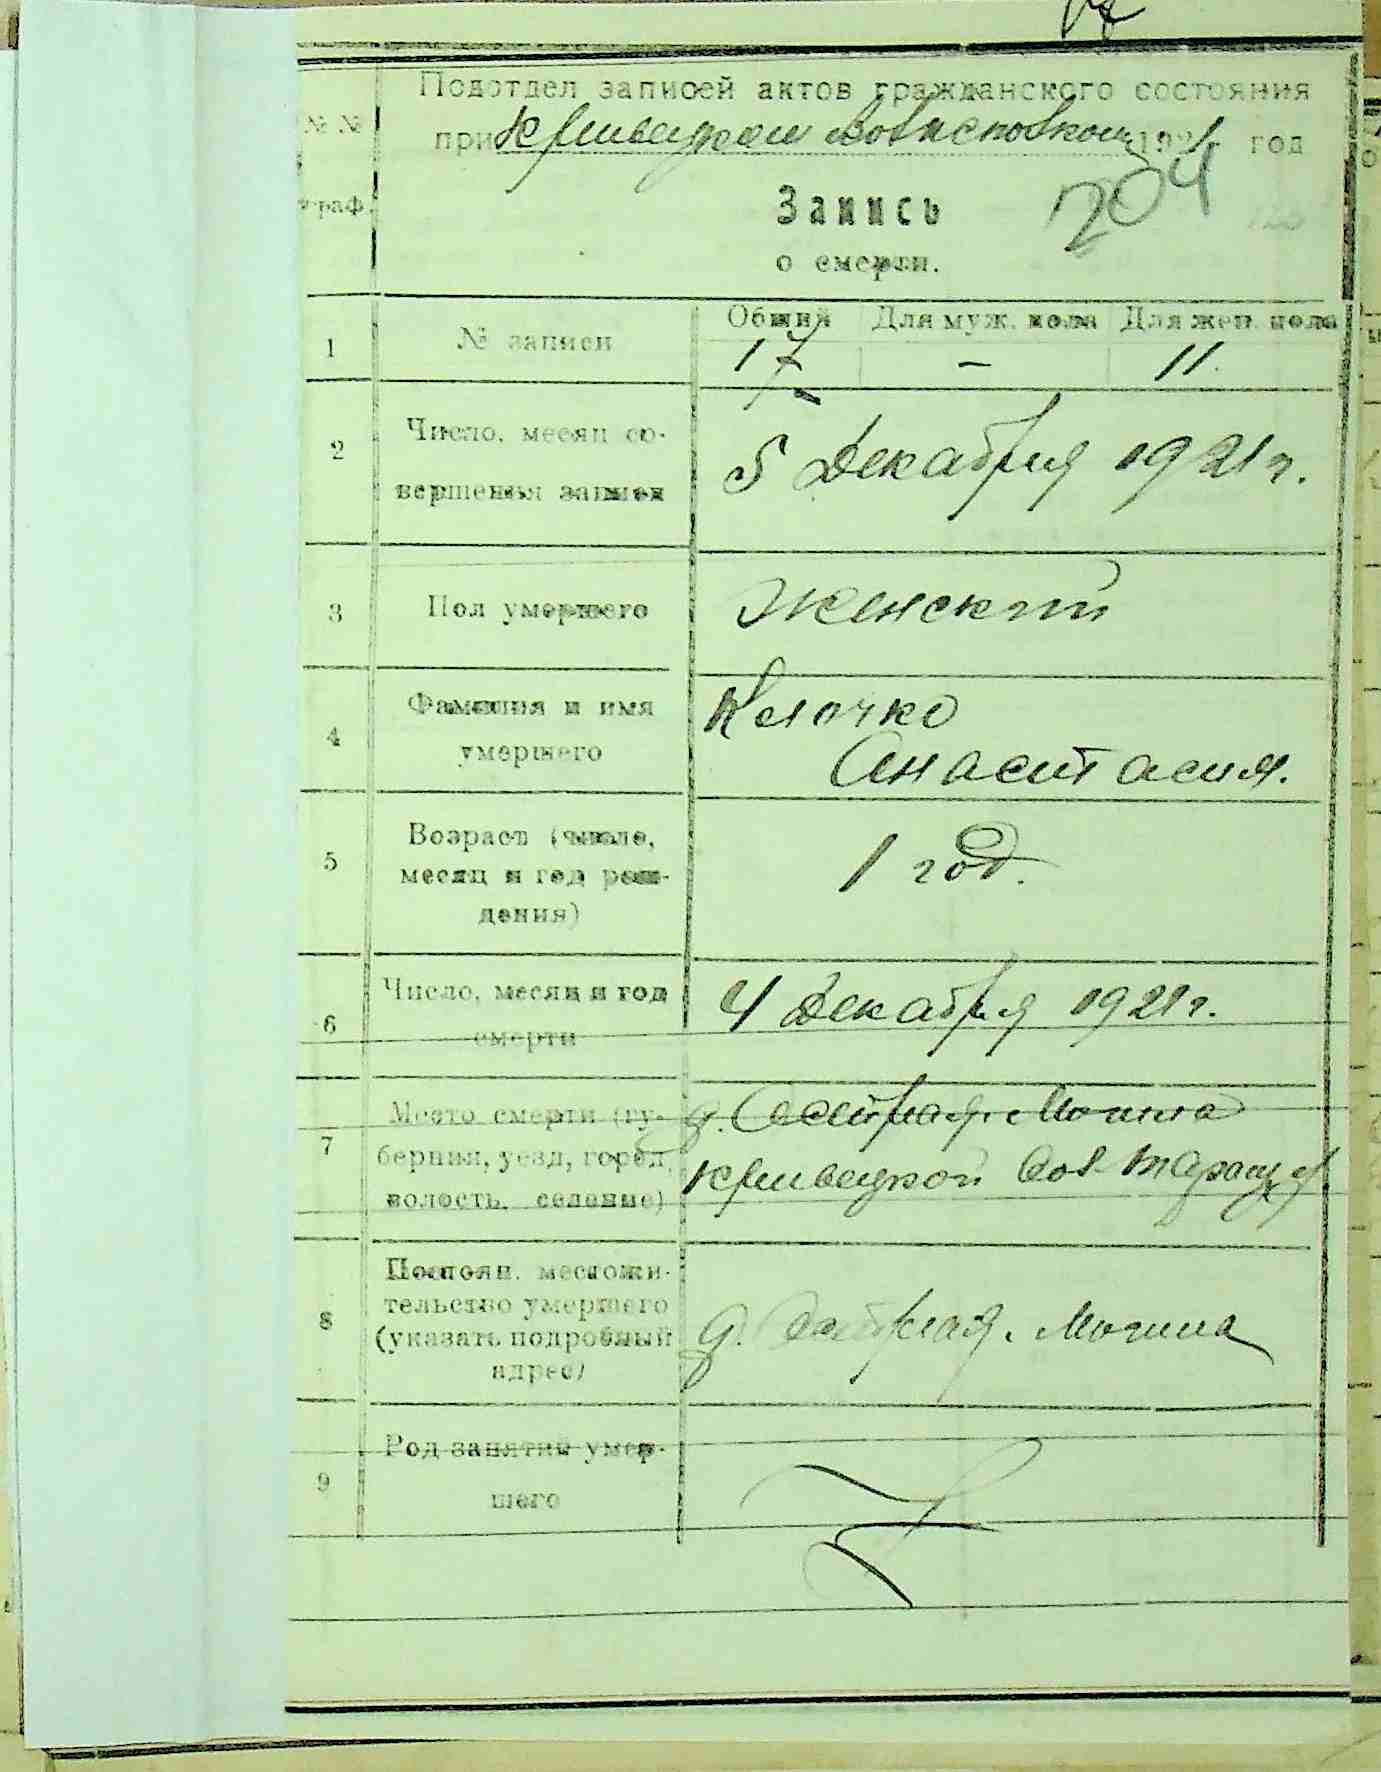 Подотдел записей актов гражданского состояния
при Кривецком Волисполкоме 1921 год
№№
граф.
204
Запись
о смерти.
1 № записи Общий Для муж. пола Для жен. пола
17 - 11.
2 Число, месяц со-
вершенья записи
5 Декабря 1921 г.
3 Пол умершего Женский
4 Фамилия и имя
умершего
Клочко
Анастасия.
5 Возраст (число,
месяц и год рож-
дения)
1 год.
6 Число, месяц и год
смерти
4 Декабря 1921 г.
7 Место смерти (гу-
берния, уезд, город,
волость, селение)
д. Острая Могила
Кривецкой вол. Таращ. у
8 Постоян. местожи-
тельство умершего
(указать подробный
адрес)
д. Острая Могила
9 Род занятий умер-
шего